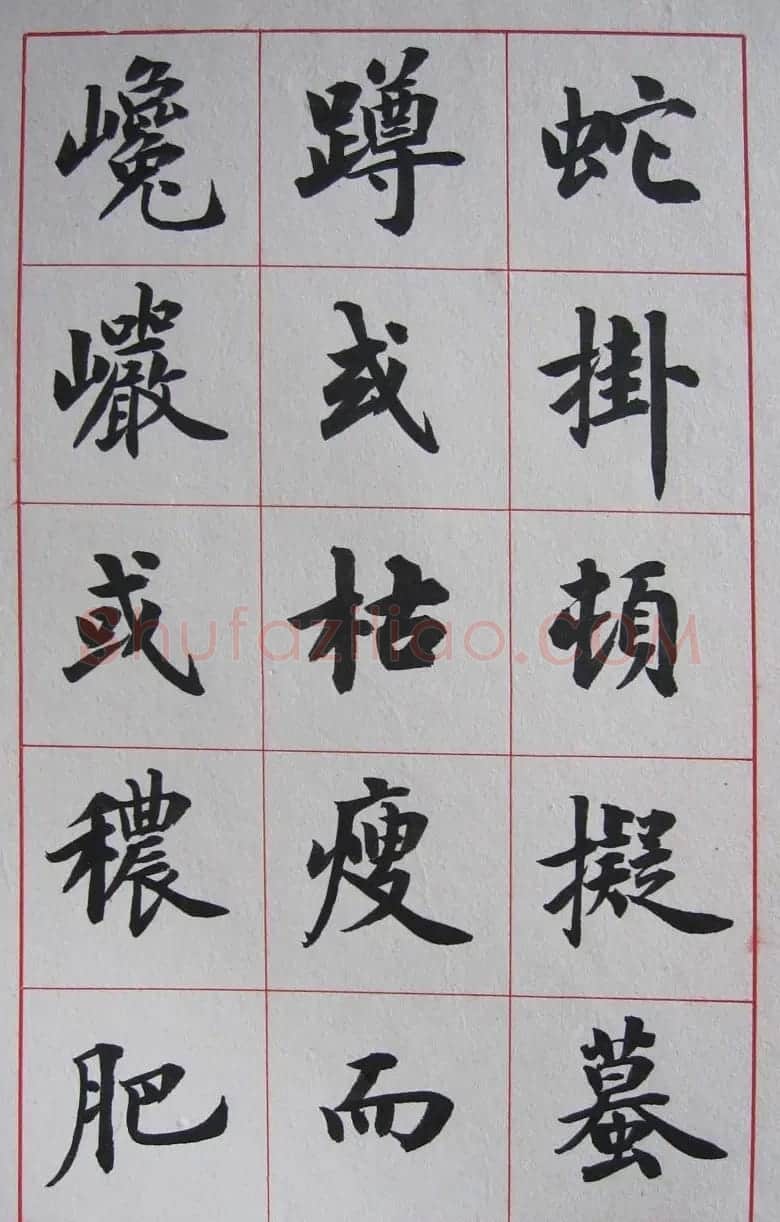 蛇掛頓擬蟇
蹲或枯瘦而
巉巖或穠肥
Shufaziliao.COM